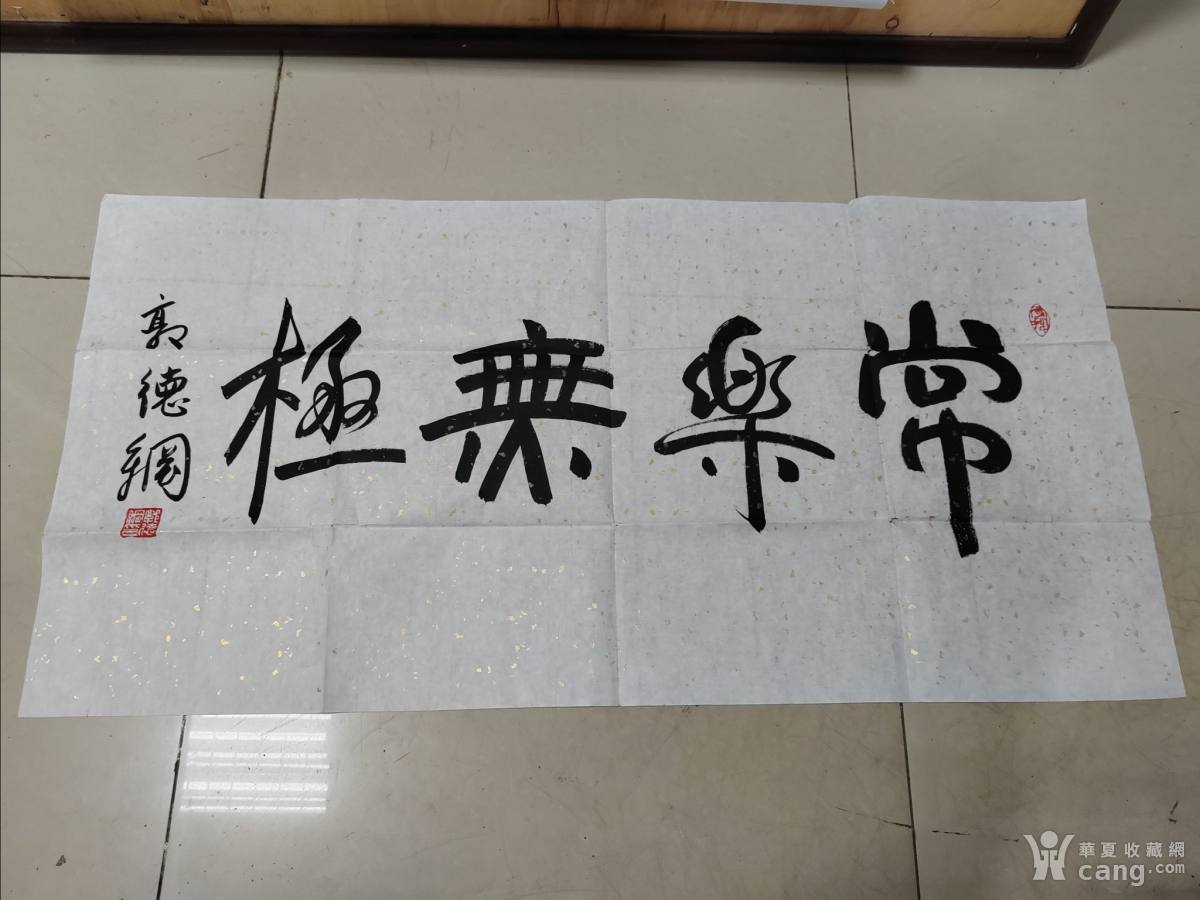 常樂無極
郭德綱
華夏收藏網
cang.com